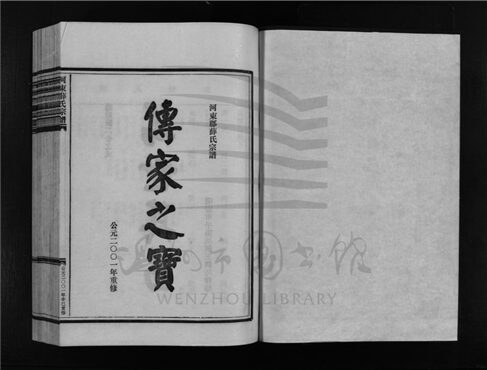 河東郡薛氏宗譜
傳家之寶
公元二〇〇一年重修
河東薛氏宗譜
温州市图书馆
WENZHOU LIBRARY